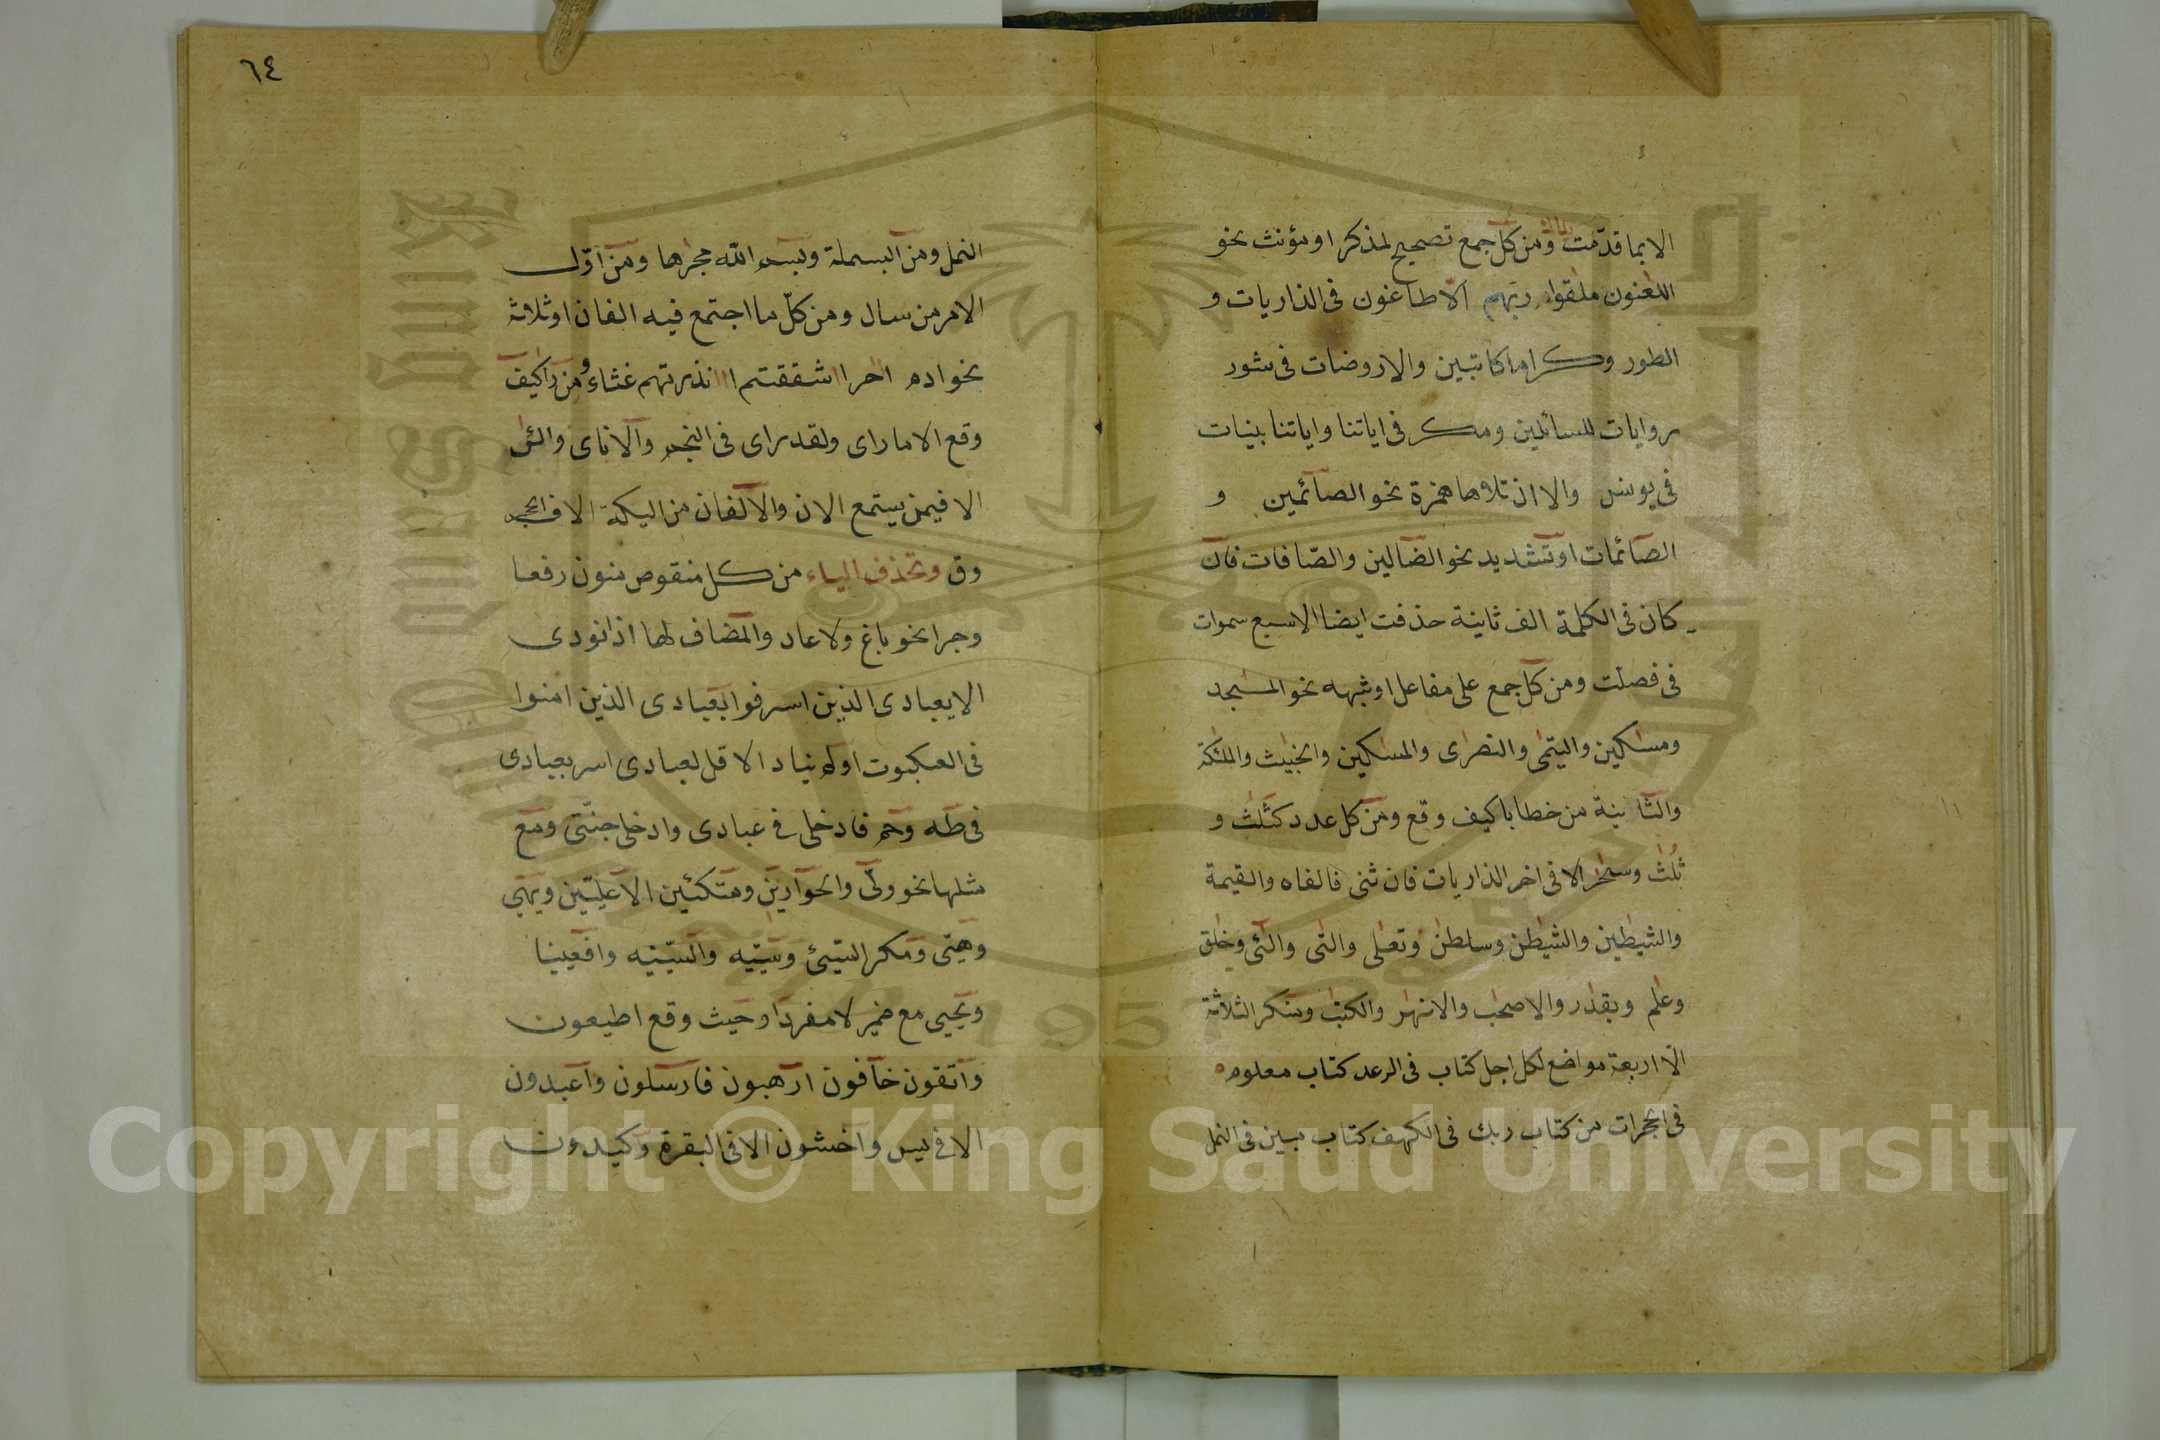 الا بما قدّمت ومن كل جمع تصحيح لمذكر او مؤنث نحو
اللعنون ملقوا ربهم الا طاغون فى الذاريات و
الطور وكراما كاتبين والا روضات فى شور
روايات للسائلين ومكر فى اياتنا واياتنا بينات
فى يونس والا ان تلاها همزة نحو الصآئمين و
الصآئمات او تشديد نحو الضآلين والصّافات فان
كان فى الكلمة الف ثانية حذفت ايضا الا سبع سموات
فى فصلت ومن كل جمع على مفاعل او شبهه نحو المسجد
ومسكين واليتمى والنصرى والمسكين والخبيث والملئكة
والثانية من خطايا كيف وقع ومن كل عدد كثلث و
ثلث وسحر الا فى اخر الذاريات فان ثنى فالفاه والقيمة
والشيطين والشيطن وسلطن وتعلى والتى والئى وخلق
وعلم وبقدر والاصحب والانهر والكتب ومنكر الثلاثة
الّا اربعة مواضع لكل اجل كتاب فى الرعد كتاب معلوم
فى الحجرات من كتاب ربك فى الكهف كتاب مبين فى النمل
٦٤
النمل ومن البسملة وبسم الله مجرها ومن اوّل
الامر من سال ومن كلّ ما اجتمع فيه الفان او ثلاثة
نحو ادم اخرا اشفقتم اانذرتهم غثاء ومن راكيف
وقع الا ما راى ولقد راى فى النجم والا ناى والئن
الا فيمن يستمع الان والا الفان من اليكة الا فى الحجر
وق وتحذف الياء من كل منقوص منون رفعا
وجرا نحو باغ ولا عاد والمضاف لها اذا نودى
الا يعبادى الذين اسرفوا يعبادى الذين امنوا
فى العنكبوت اولم ينياد الا قل لعبادى اسر بعبادى
فى طه وحم فادخلى فى عبادى وادخلى جنّتى ومع
مثلها نحو ولىّ والحوارين ومتكئين الا عليّين ويهيى
وهيّى ومكر السّيّئ وسيّيه والسّيّيه وافعيينا
ويحيى مع ضمير لا مفردا وحيث وقع اطيعون
واتقون خافون ارهبون فارسلون واعبدون
الا فى يس واخشون الا فى البقرة وكيدون
Copyright © King Saud University
1957